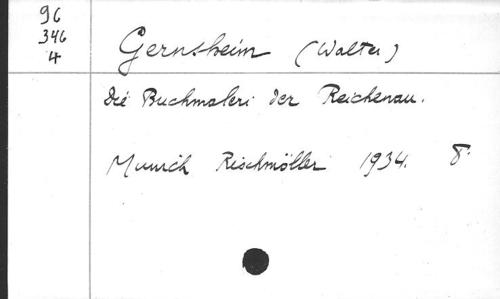 96
346
4
Gernsheim (Walter)
Die Buchmaleri der Reichenau.
Munich Rischmöller 1934. 8°